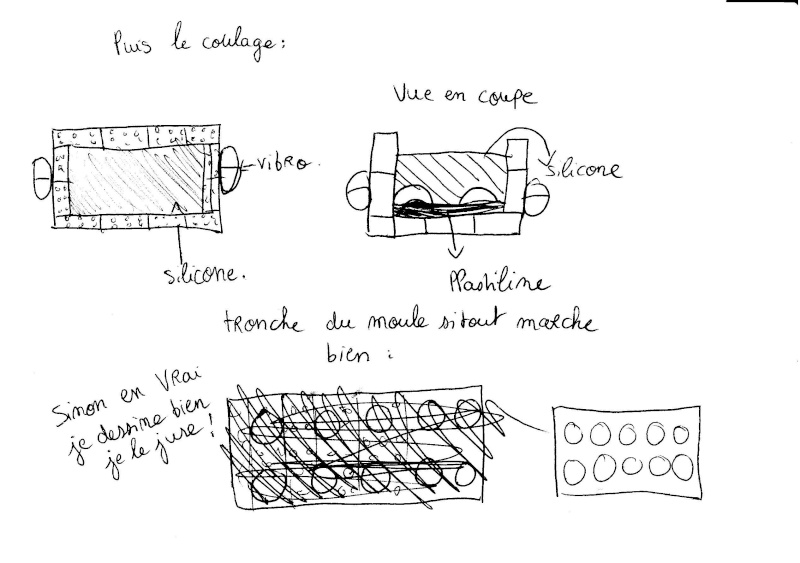 Puis le coulage :
Vue en coupe
VIBRO.
silicone
silicone.
Plastiline
tronche du moule si tout marche
bien :
Sinon en vrai
je dessine bien
je le jure !